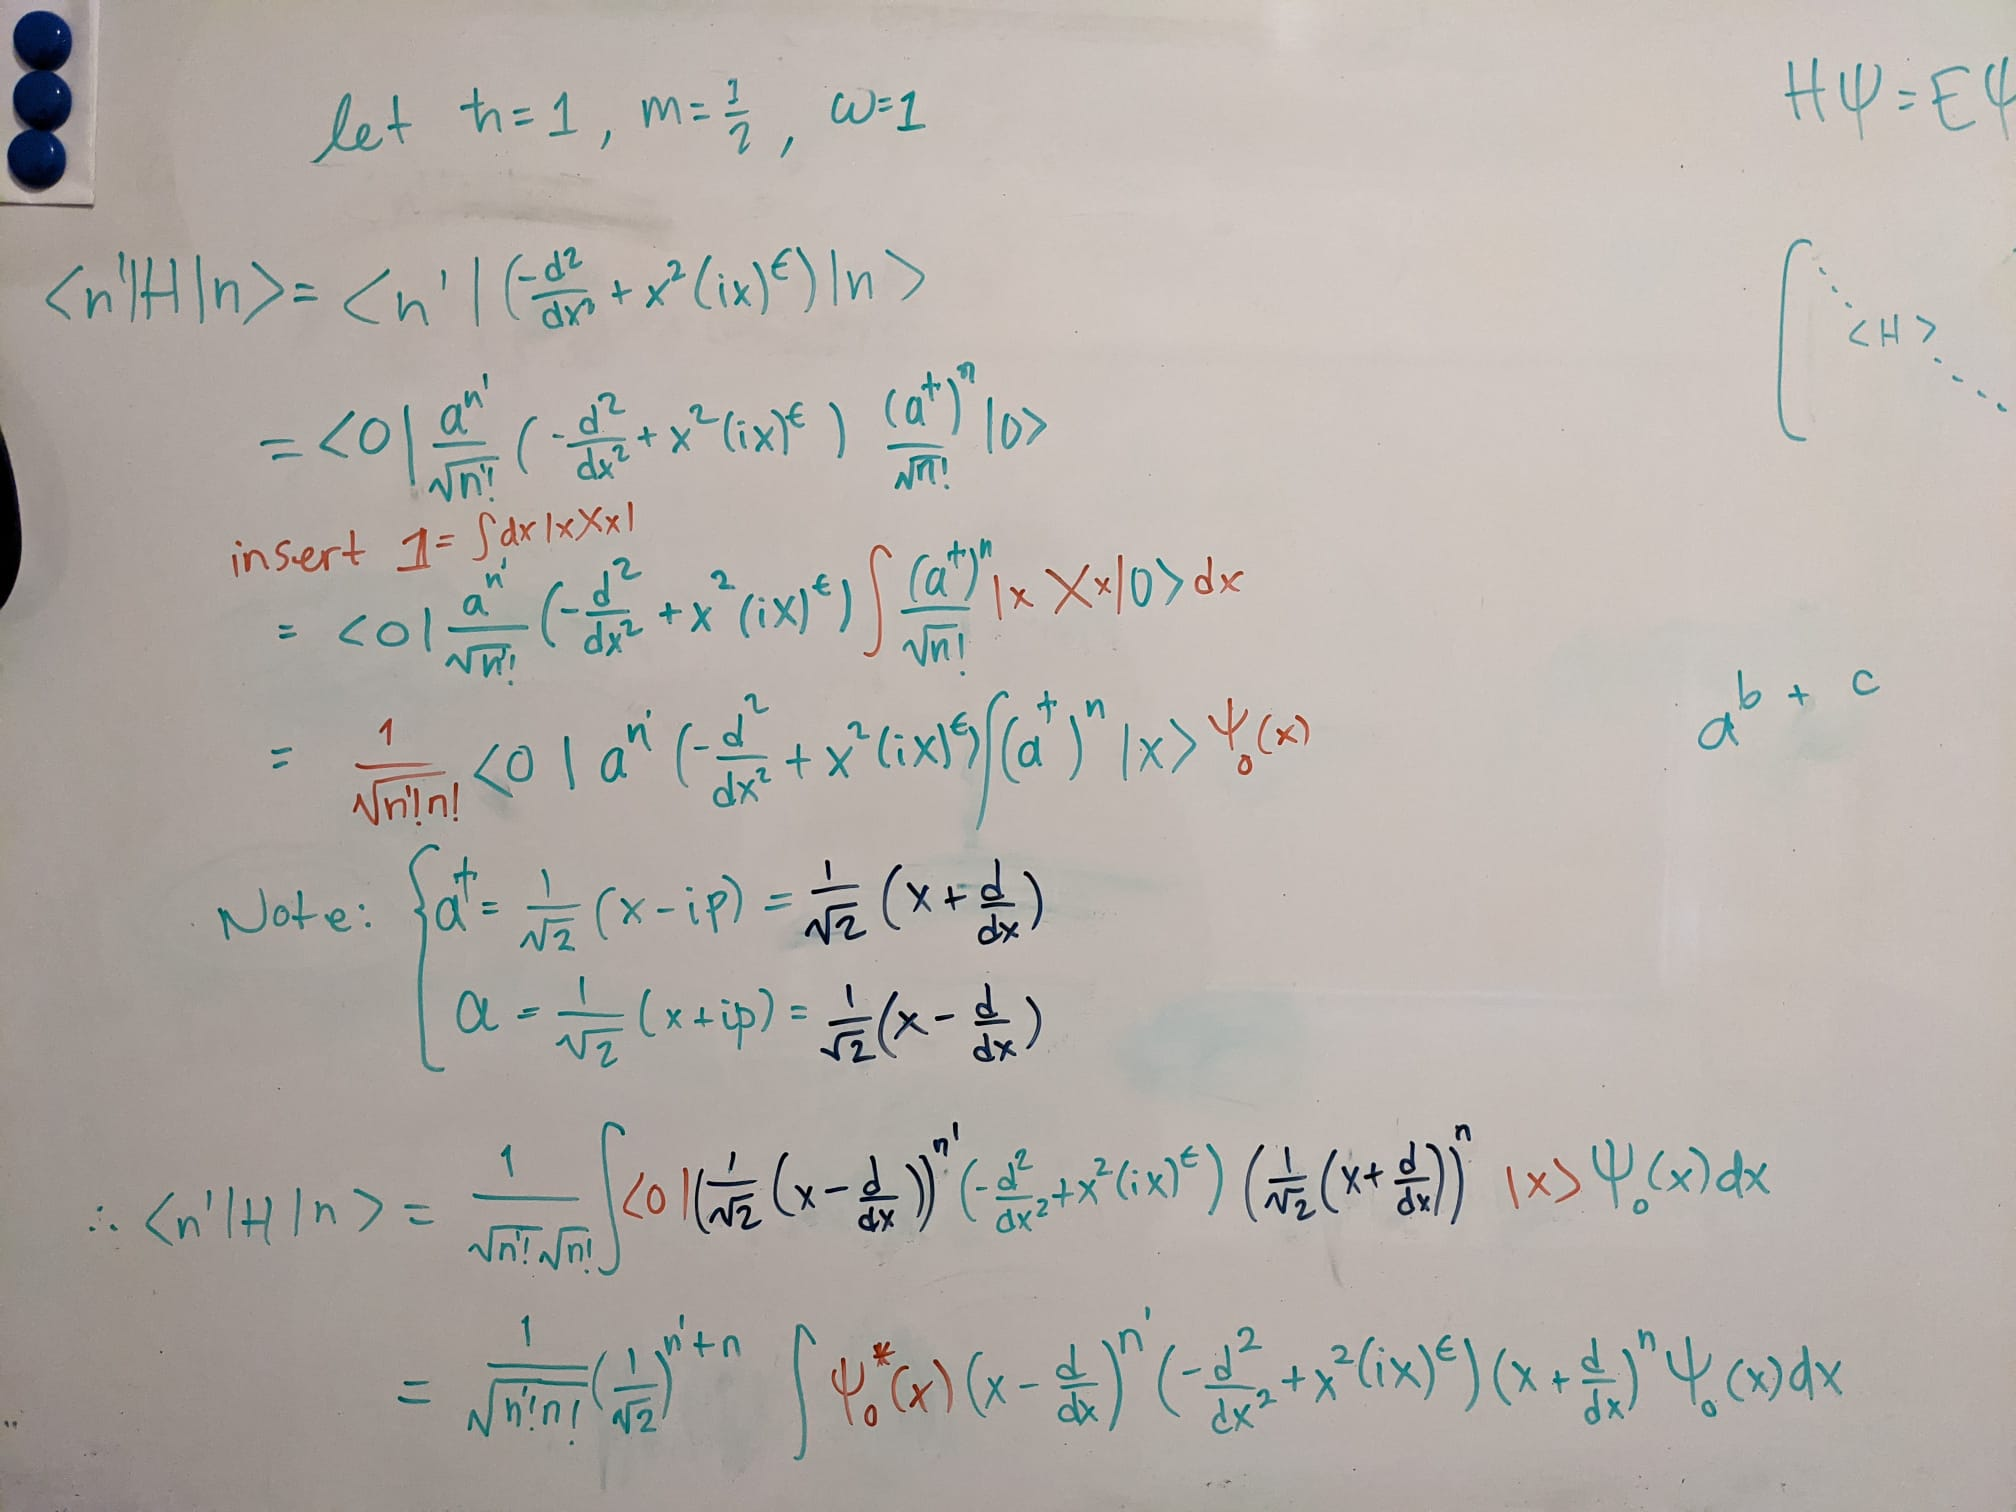 let ħ=1, m=1/2, ω=1
Hψ=Eψ
<n'|H|n>= <n'|(-d²/dx² + x²(ix)^ϵ)|n>
<H>
= <0| a^n'/√n'! (-d²/dx² + x²(ix)^ϵ) (a†)^n/√n! |0>
insert 1= ∫dx|x⟩⟨x|
= <0| a^n'/√n'! (-d²/dx² + x²(ix)^ϵ) ∫ (a†)^n/√n! |x⟩⟨x|0> dx
= 1/√n'!n! <0| a^n' (-d²/dx² + x²(ix)^ϵ) ∫(a†)^n |x> ψ₀(x)
a^b + c
Note: { a† = 1/√2 (x-ip) = 1/√2 (x + d/dx)
a = 1/√2 (x+ip) = 1/√2 (x - d/dx)
∴ <n'|H|n> = 1/√n'!√n! ∫<0|(1/√2 (x - d/dx))^n' (-d²/dx² + x²(ix)^ϵ) (1/√2 (x + d/dx))^n |x> ψ₀(x)dx
= 1/√n'!n! (1/√2)^n'+n ∫ ψ₀*(x) (x - d/dx)^n' (-d²/dx² + x²(ix)^ϵ) (x + d/dx)^n ψ₀(x)dx